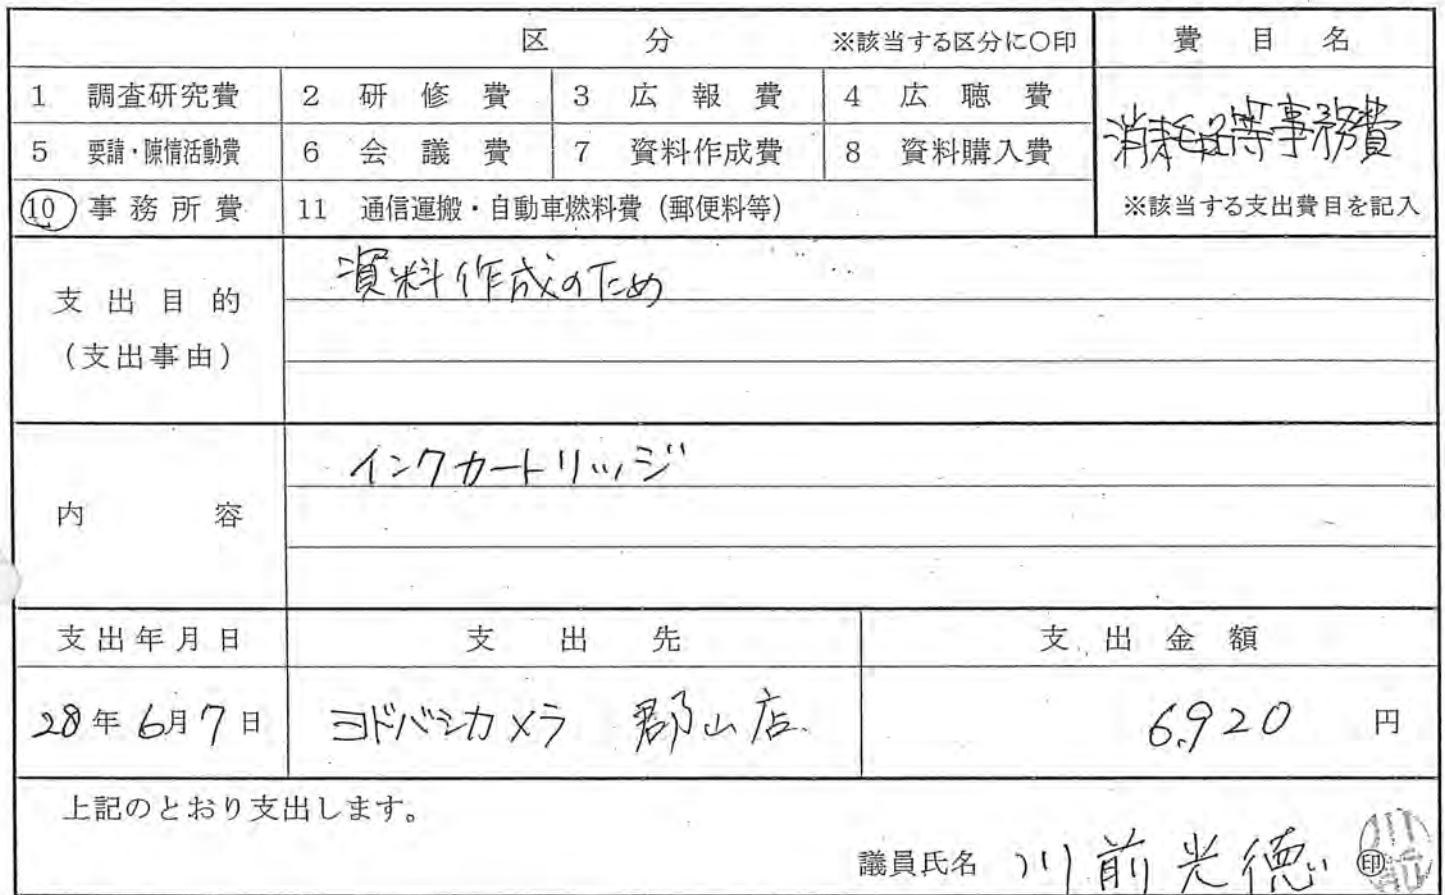 区 分 ※該当する区分に○印 費目名
1 調査研究費 2 研修費 3 広報費 4 広聴費
消耗品等事務費
5 要請・陳情活動費 6 会議費 7 資料作成費 8 資料購入費
10 事務所費 11 通信運搬・自動車燃料費（郵便料等） ※該当する支出費目を記入
支出目的
（支出事由）
資料作成のため
内容
インクカートリッジ
支出年月日 支出先 支出金額
28年6月7日 ヨドバシカメラ 郡山店 6,920円
上記のとおり支出します。
議員氏名 川前光徳 ㊞
川前